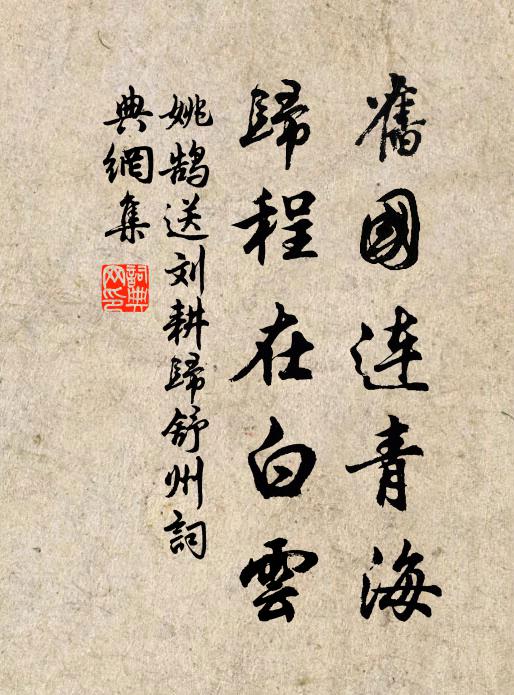 舊國連青海
歸程在白雲
姚鵠送刘耕歸舒州詞
典網集
詞典
网印